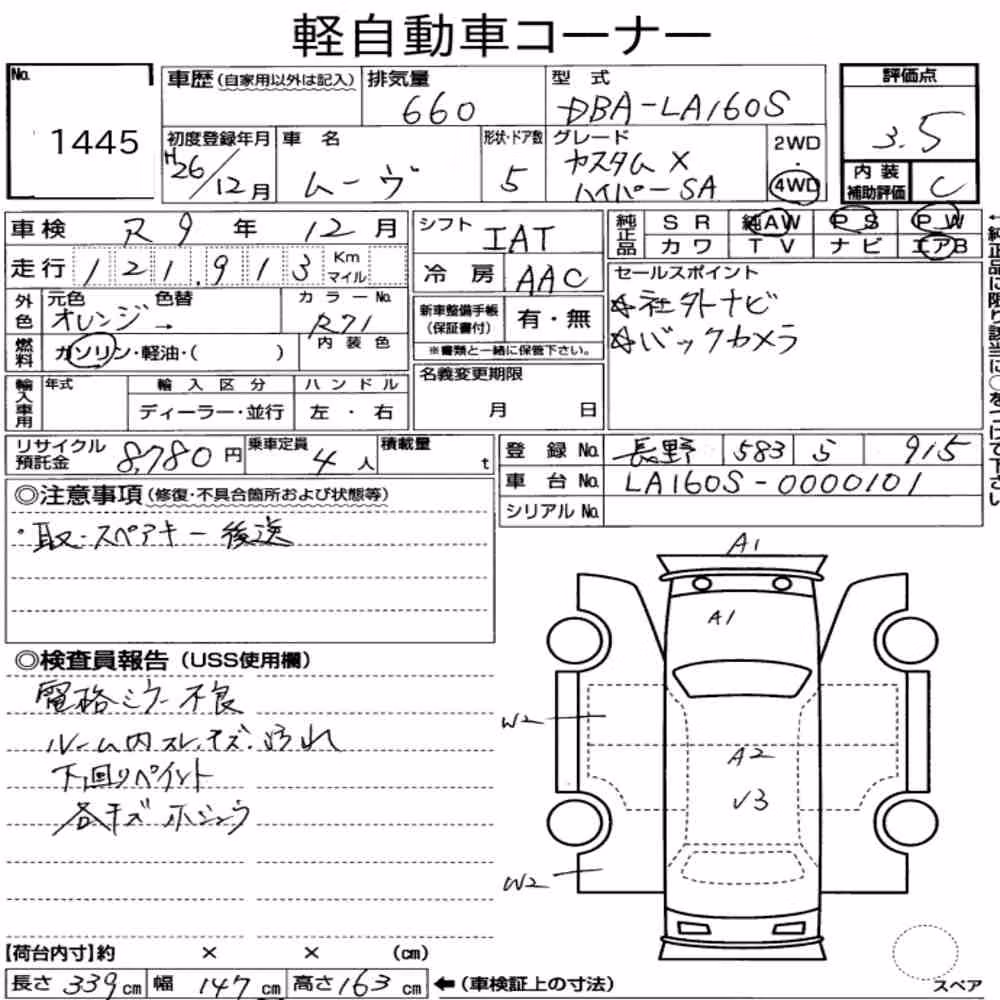 軽自動車コーナー
No. 1445
車歴(自家用以外は記入) 排気量 660 型式 DBA-LA160S
評価点 3.5
初度登録年月 H26/12月 車名 ムーヴ 形状・ドア数 5 グレード カスタム X ハイパーSA 2WD・4WD
内装補助評価 C
車検 R9年 12月 シフト IAT 純正品 SR 純AW PS PW
カワ TV ナビ エアB
走行 121,913 Km マイル 冷房 AAC
セールスポイント
☆社外ナビ
☆バックカメラ
←純正品に限り該当に○をつけて下さい
外色 元色 オレンジ→ 色替 カラーNo. R71
新車整備手帳(保証書付) 有・無
※書類と一緒に保管下さい。
燃料 ガソリン・軽油・( ) 内装色
名義変更期限 月 日
輸入車用 年式 輸入区分 ハンドル
ディーラー・並行 左・右
リサイクル預託金 8,780円 乗車定員 4人 積載量 t
登録No. 長野 583 5 915
車台No. LA160S-0000101
シリアルNo.
◎注意事項(修復・不具合箇所および状態等)
・取・スペアキー後送
◎検査員報告(USS使用欄)
電格ミラー不良
ルーム内スレ、キズ、汚れ
下回りペイント
各キズ ホシュウ
A1
A1
W2
A2
V3
W2
スペア
【荷台内寸】約 × × (cm)
長さ 339cm 幅 147cm 高さ 163cm ←(車検証上の寸法)